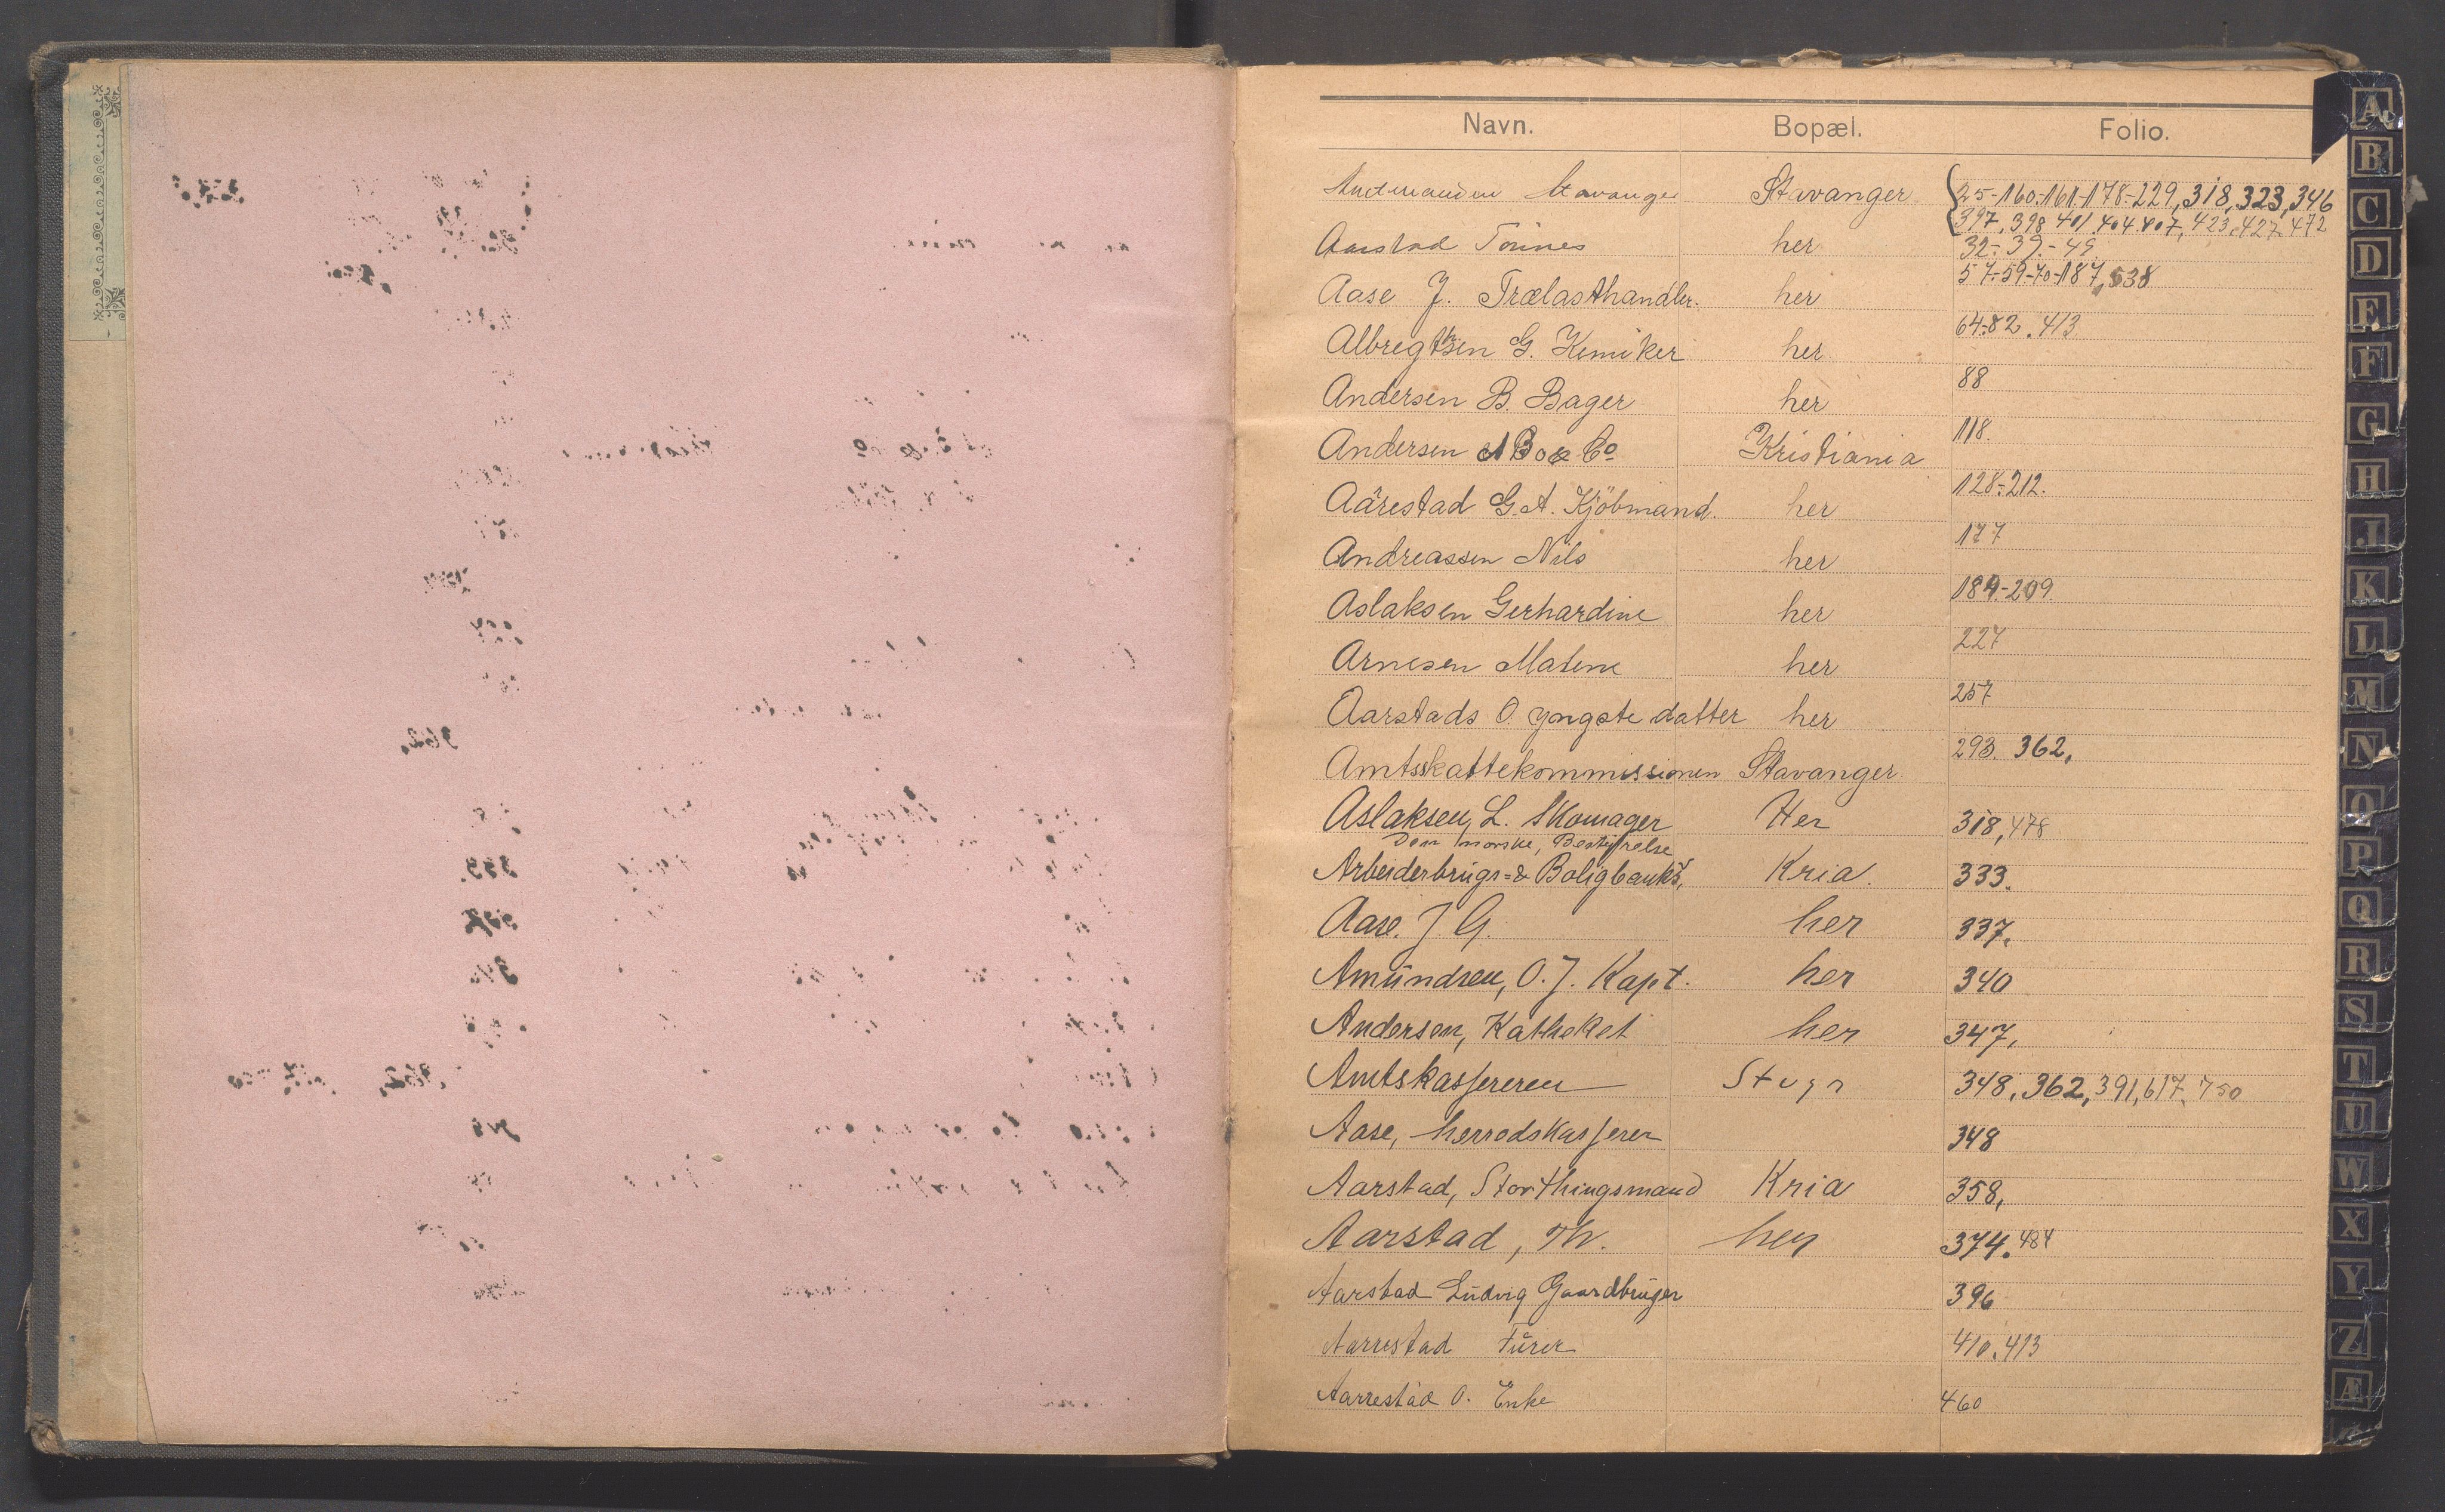 Navn. Bopæl. Folio.
Amtmanden Stavanger Stavanger 25-160-161-178-229, 318, 323, 346
397, 398 401 404 407, 423, 427. 472
Aarstad Tönnes her 32-39-49
Aase J. Trælasthandler. her 57-59-70-187, 538
Albregtsen G. Kemiker her 64-82. 413
Andersen B. Bager her 88
Andersen & Co Kristiania 118.
Aårestad G. A. Kjöbmand. her 128-212.
Andreassen Nils her 177
Aslaksen Gerhardine her 184-209.
Arnesen Malene her 227
Aarstads O. yngste datter her 257
Amtsskattekommissionen Stavanger 293. 362,
Aslaksen, L. Skomager Her 318, 478
Den norske, Bestyrelse
Arbeiderbrugs=& Boligbank's, Kria. 333.
Aase. J. G. her 337,
Amundsen, O. J. Kapt. her 340
Andersen, Katheket her 347,
Amtskassereren Stvgr 348, 362, 391, 617, 750
Aase, herredskasserer 348
Aarstad, Storthingsmand Kria 358,
Aarstad, Th. her 374. 484
Aarstad Ludvig Gaardbruger 396
Aarrestad 410. 413
Aarrestad O. Enke 460
A
B
C
D
E
F
G
H
J
K
L
M
N
O
P
Q
R
S
T
U
W
X
Y
Z
Æ